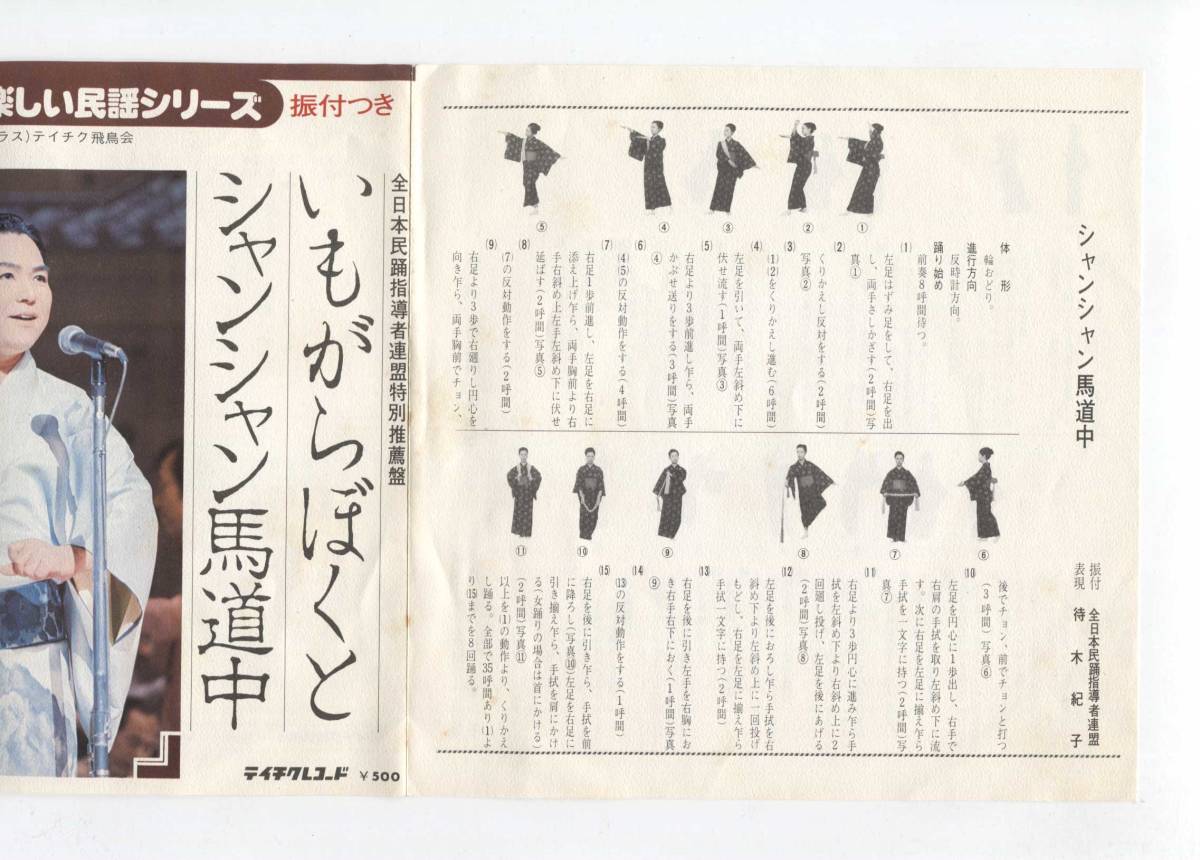 楽しい民謡シリーズ
振付つき
ラス)テイチク飛鳥会
全日本民踊指導者連盟特別推薦盤
いもがらぼくと
シャンシャン馬道中
テイチクレコード ￥500
シャンシャン馬道中
振付 全日本民踊指導者連盟
表現 待木紀子
体形
輪おどり。
進行方向
反時計方向。
踊り始め
前奏8呼間待つ。
①
②
③
④
⑤
(1)
左足はずみ足をして、右足を出
し、両手さしかざす(2呼間)写
真①
(2)
くりかえし反対をする(2呼間)
写真②
(3)
(1)(2)をくりかえし進む(6呼間)
(4)
左足を引いて、両手左斜め下に
伏せ流す(1呼間)写真③
(5)
右足より3歩前進し乍ら、両手
かぶせ送りをする(3呼間)写真
④
(6)
(4)(5)の反対動作をする(4呼間)
(7)
右足1歩前進し、左足を右足に
添え上げ乍ら、両手胸前より右
手右斜め上左手左斜め下に伏せ
延ばす(2呼間)写真⑤
(8)
(7)の反対動作をする(2呼間)
(9)
右足より3歩で右廻りし円心を
向き乍ら、両手胸前でチョン、
⑥
⑦
⑧
⑨
⑩
⑪
後でチョン、前でチョンと打つ
(3呼間)写真⑥
(10)
左足を円心に1歩出し、右手で
右肩の手拭を取り左斜め下に流
す。次に右足を左足に揃え乍ら
手拭を一文字に持つ(2呼間)写
真⑦
(11)
右足より3歩円心に進み乍ら手
拭を左斜め下より右斜め上に2
回廻し投げ、左足を後にあげる
(2呼間)写真⑧
(12)
左足を後におろし乍ら手拭を右
斜め下より左斜め上に一回投げ
もどし、右足を左足に揃え乍ら
手拭一文字に持つ(2呼間)
(13)
右足を後に引き左手を右胸にお
き右手右下におく(1呼間)写真
⑨
(14)
(13)の反対動作をする(1呼間)
(15)
右足を後に引き乍ら、手拭を前
に降ろし(写真⑩)左足を右足に
引き揃え乍ら、手拭を肩にかけ
る(女踊りの場合は首にかける)
(2呼間)写真⑪
以上を(1)の動作より、くりかえ
し踊る。全部で35呼間あり(1)よ
り(15)までを8回踊る。